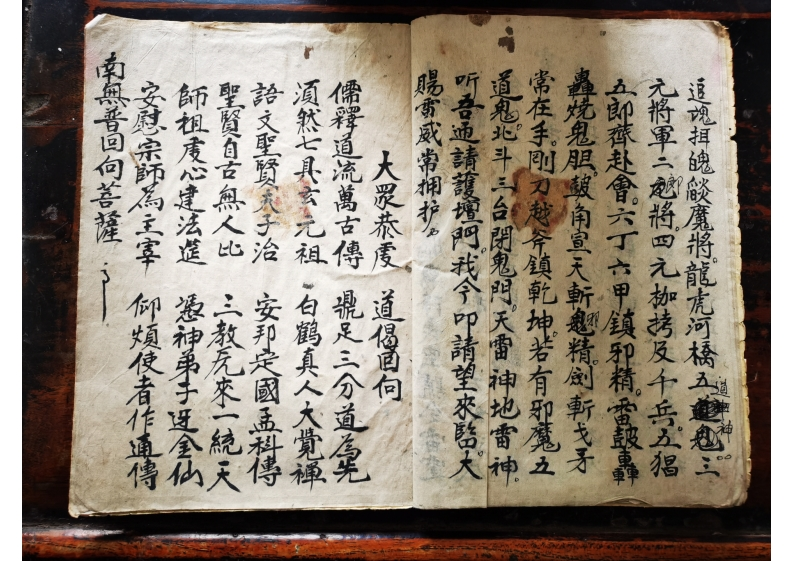 追魂捉魄燄魔將。龍虎河橋五道神。三
元將軍二郎將。四元枷拷及千兵。五猖
五郎齊赴會。六丁六甲鎮邪精。雷鼓轟轟
轟燒鬼胆。皷角宣天斬鬼精。劍斬戈矛
常在手。剛刀越斧鎮乾坤。若有邪魔五
道鬼。北斗三台閉鬼門。天雷神地雷神。
听吾通請護壇門。我今叩請望來臨。大
賜雷威常拥护
大眾恭虔 道偈回向
儒釋道流萬古傳 鼎足三分道為先
湏然七具玄元祖 白鶴真人大覺禪
語文聖賢夫子治 安邦定國孟科傳
聖賢自古無人比 三教元來一統天
師祖虔心建法筵 憑神弟子迓金仙
安慰宗師為主宰 仰煩使者作通傳
南無普回向菩薩